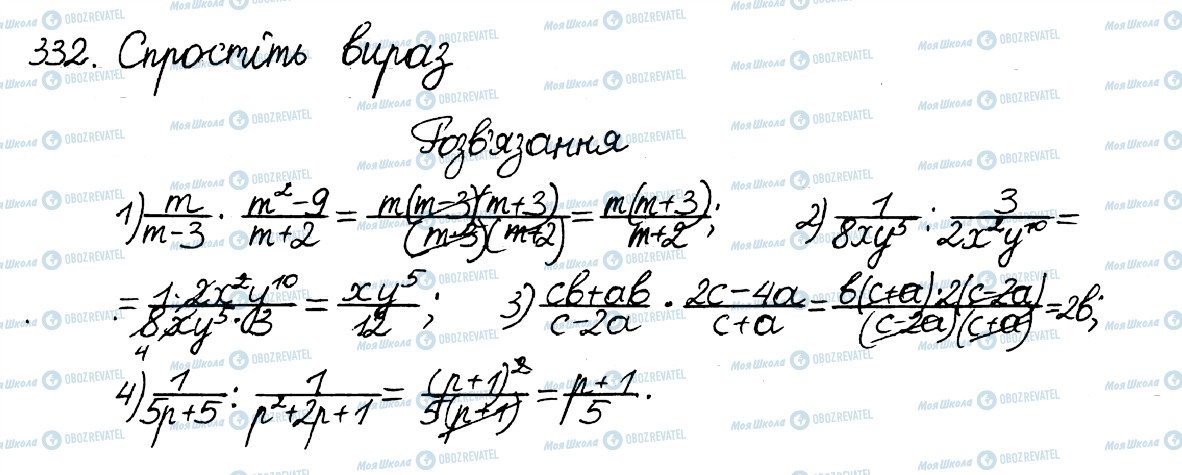 332. Спростіть вираз
Розв'язання
1) m/(m-3) · (m²-9)/(m+2) = m(m-3)(m+3)/((m-3)(m+2)) = m(m+3)/(m+2); 2) 1/(8xy⁵) : 3/(2x²y¹⁰) =
= 1·2x²y¹⁰/(8xy⁵·3) = xy⁵/12; 3) (cb+ab)/(c-2a) · (2c-4a)/(c+a) = b(c+a)·2(c-2a)/((c-2a)(c+a)) = 2b;
4
4) 1/(5p+5) : 1/(p²+2p+1) = (p+1)²/(5(p+1)) = (p+1)/5.
Моя Школа OBOZREVATEL